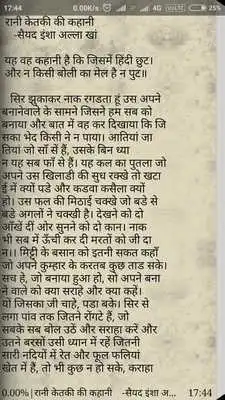 17:44 0.00K/s 4G VoLTE 25%
रानी केतकी की कहानी
-सैयद इंशा अल्ला खां
यह वह कहानी है कि जिसमें हिंदी छुट।
और न किसी बोली का मेल है न पुट॥
सिर झुकाकर नाक रगडता हूं उस अपने
बनानेवाले के सामने जिसने हम सब को
बनाया और बात में वह कर दिखाया कि जि
सका भेद किसी ने न पाया। आतियां जा
तियां जो साँ सें हैं, उसके बिन ध्या
न यह सब फाँ से हैं। यह कल का पुतला जो
अपने उस खिलाडी की सुध रक्खे तो खटा
ई में क्यों पडे और कडवा कसैला क्यों
हो। उस फल की मिठाई चक्खे जो बडे से
बडे अगलों ने चक्खी है। देखने को दो
आँखें दीं और सुनने को दो कान। नाक
भी सब में ऊँची कर दी मरतों को जी दा
न।। मिट्टी के बसान को इतनी सकत कहाँ
जो अपने कुम्हार के करतब कुछ ताड सके।
सच है, जो बनाया हुआ हो, सो अपने बना
ने वाले को क्या सराहे और क्या कहें।
यों जिसका जी चाहे, पडा बके। सिर से
लगा पांव तक जितने रोंगटे हैं, जो
सबके सब बोल उठें और सराहा करें और
उतने बरसों उसी ध्यान में रहें जितनी
सारी नदियों में रेत और फूल फलियां
खेत में हैं, तो भी कुछ न हो सके, कराहा
0.00% |रानी केतकी की कहानी -सैयद इंशा अ... 17:44